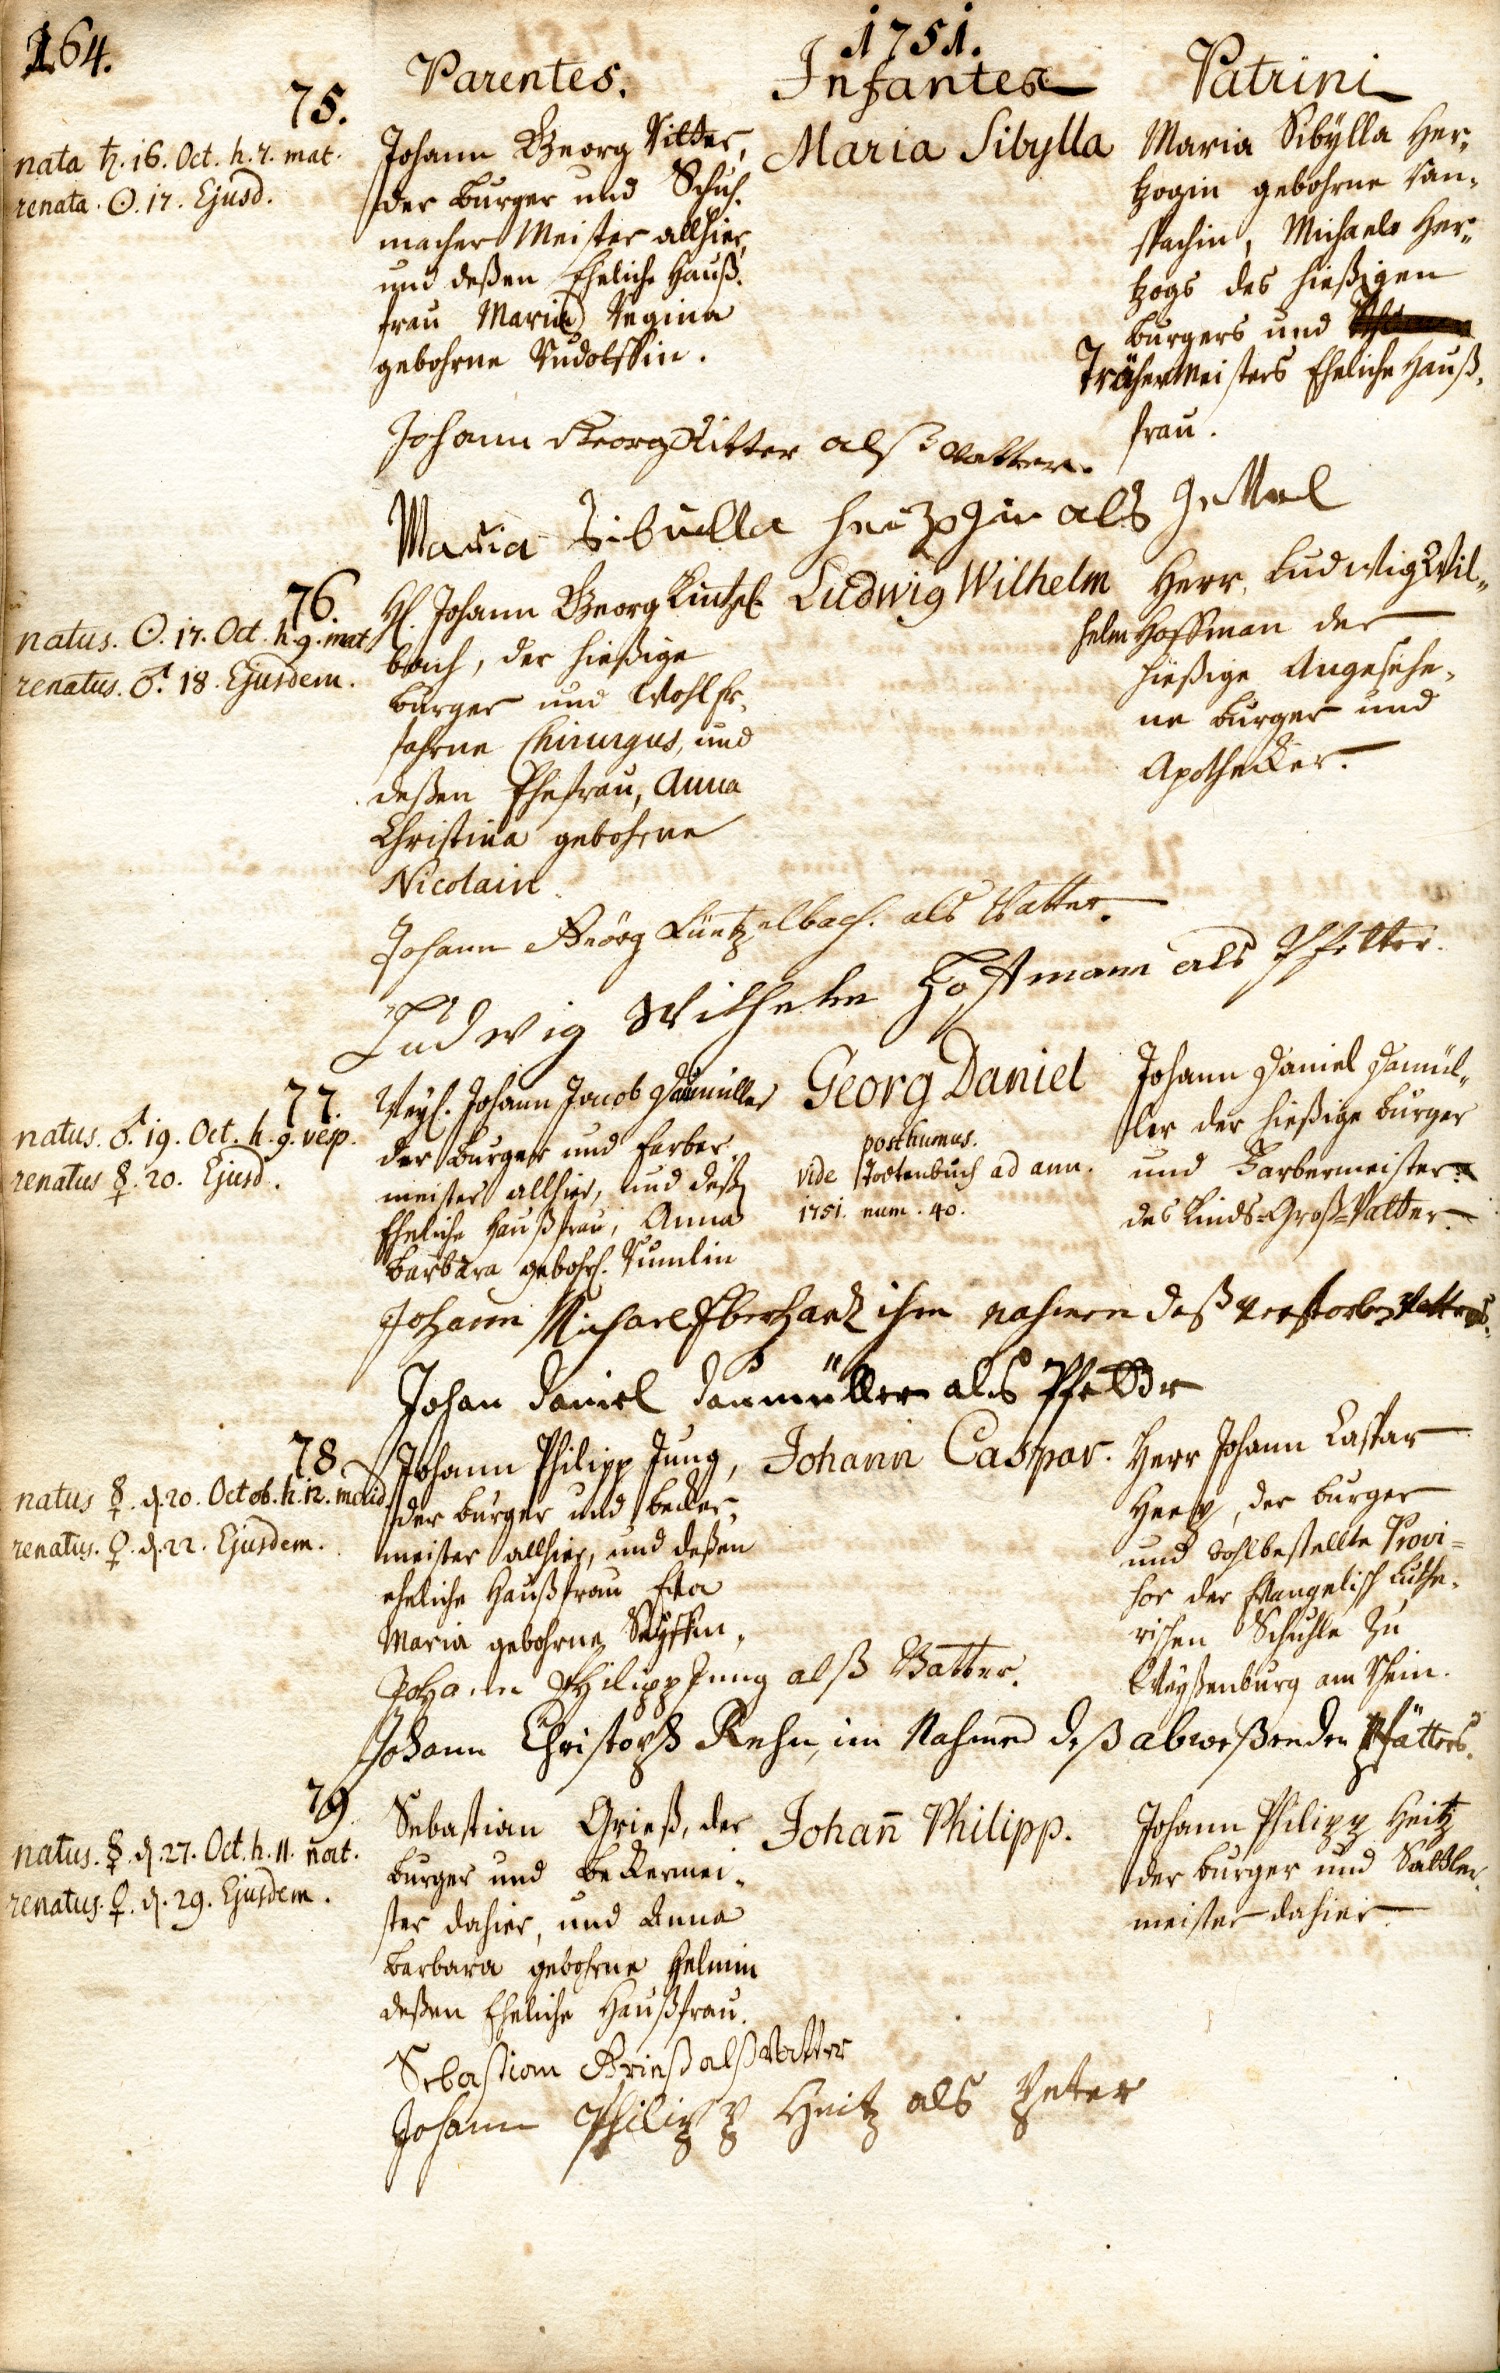 164.
1751.
Parentes. Infantes Patrini
75.
nata ♄. 16. Oct. h. 7. mat.
renata. ☉. 17. Ejusd.
Johann Georg Ritter,
der Burger und Schuh-
macher Meister allhier,
und deßen Eheliche Hauß-
frau Maria Regina
gebohrne Rudolffin.
Maria Sibylla
Maria Sibÿlla Her-
tzogin gebohrne
Michaels Her-
tzogs des hießigen
burgers und
Träher Meisters Eheliche Hauß-
frau.
Johann Georg Ritter alß vatter.
Maria Sibuella als Gettel
76.
natus. ☉. 17. Oct. h. 9. mat
renatus. ♂. 18. Ejusdem.
H. Johann Georg Küntzel-
bach, der hießige
Burger und Wohl Er-
fahrne Chirurgus, und
deßen Ehefrau, Anna
Christina gebohrne
Nicolain
Ludwig Wilhelm
Herr Ludwig Wil-
helm Hoffman der
hießige Angesehe-
ne Burger und
Apothecker.
Johann Geörg Küntzelbach. als Vatter.
Ludwig Wilhelm Hoffmann als Pfetter.
77.
natus. ♂. 19. Oct. h. 9. vesp.
renatus ☿. 20. Ejusd.
Weyl. Johann Jacob Daumüller
der Burger und Farber-
meister allhier, und deß
Eheliche Haußfrau, Anna
Barbara gebohr.
Georg Daniel
posthumus.
vide Todtenbuch ad ann.
1751. num. 40.
Johann Daniel Damül-
ler der hießige Burger
und Farbermeister
des Kinds-Groß-Vatter.
Johann Michael Eberhart ihm nahmen deß verstorben Vatters.
Johan Daniel Daumüller als Pfetter
78
natus ☿. d. 20. Octob. h. 12. merid.
renatus. ♀. d. 22. Ejusdem.
Johann Philipp Jung,
der Burger und Becker-
meister allhier, und deßen
eheliche Haußfrau Eva
Maria gebohrne
Johann Caspar.
Herr Johann Caspar
der Burger
und wohlbestellte Provi-
sor der Evangelisch Luthe-
rischen Schuhle zu
Weyßenburg am Rhein.
Johann Philipp Jung alß Vatter.
Johann Christoph Rehn, im Nahmen deß abweßenden Pfätters.
79
natus. ☿. d. 27. Oct. h. 11. noct.
renatus. ♀. d. 29. Ejusdem.
Sebastian Grieß, der
Burger und Beckermei-
ster dahier, und Anna
Barbara gebohrne Helmin
deßen Eheliche Haußfrau.
Johan̄ Philipp.
Johann Philipp Heitz
der Burger und Sattler-
meister dahier
Sebastian Grieß alß Vatter
Johann Philipp Heitz als Peter